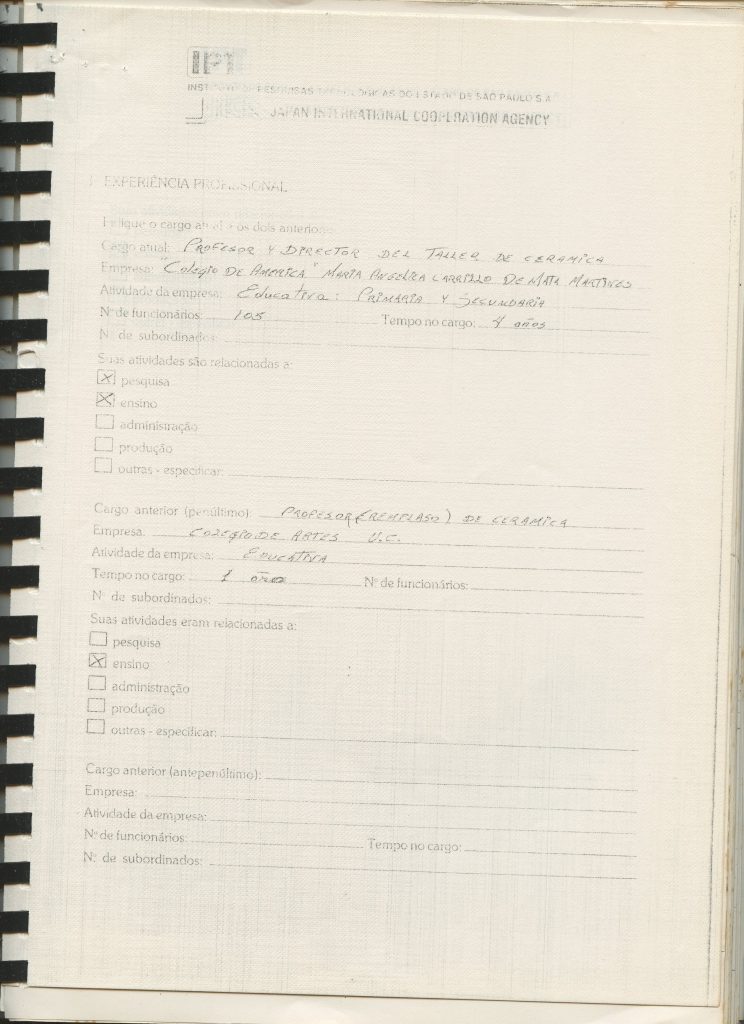 IPT
INSTITUTO DE PESQUISAS TECNOLÓGICAS DO ESTADO DE SÃO PAULO S.A.
JAPAN INTERNATIONAL COOPERATION AGENCY
EXPERIÊNCIA PROFISSIONAL
Indique o cargo atual e os dois anteriores:
Cargo atual: PROFESOR Y DIRECTOR DEL TALLER DE CERAMICA
Empresa: "COLEGIO DE AMERICA" MARIA ANGELICA CARRILLO DE MATA MARTINES
Atividade da empresa: EDUCATIVA: PRIMARIA Y SEGUNDARIA
Nº de funcionários: 105 Tempo no cargo: 4 años
Nº de subordinados:
Suas atividades são relacionadas a:
pesquisa
ensino
administração
produção
outras - especificar:
Cargo anterior (penúltimo): PROFESOR (REMPLASO) DE CERAMICA
Empresa: COLEGIO DE ARTES U.C.
Atividade da empresa: EDUCATIVA
Tempo no cargo: 1 año Nº de funcionários:
Nº de subordinados:
Suas atividades eram relacionadas a:
pesquisa
ensino
administração
produção
outras - especificar:
Cargo anterior (antepenúltimo):
Empresa:
Atividade da empresa:
Nº de funcionários: Tempo no cargo:
Nº de subordinados: